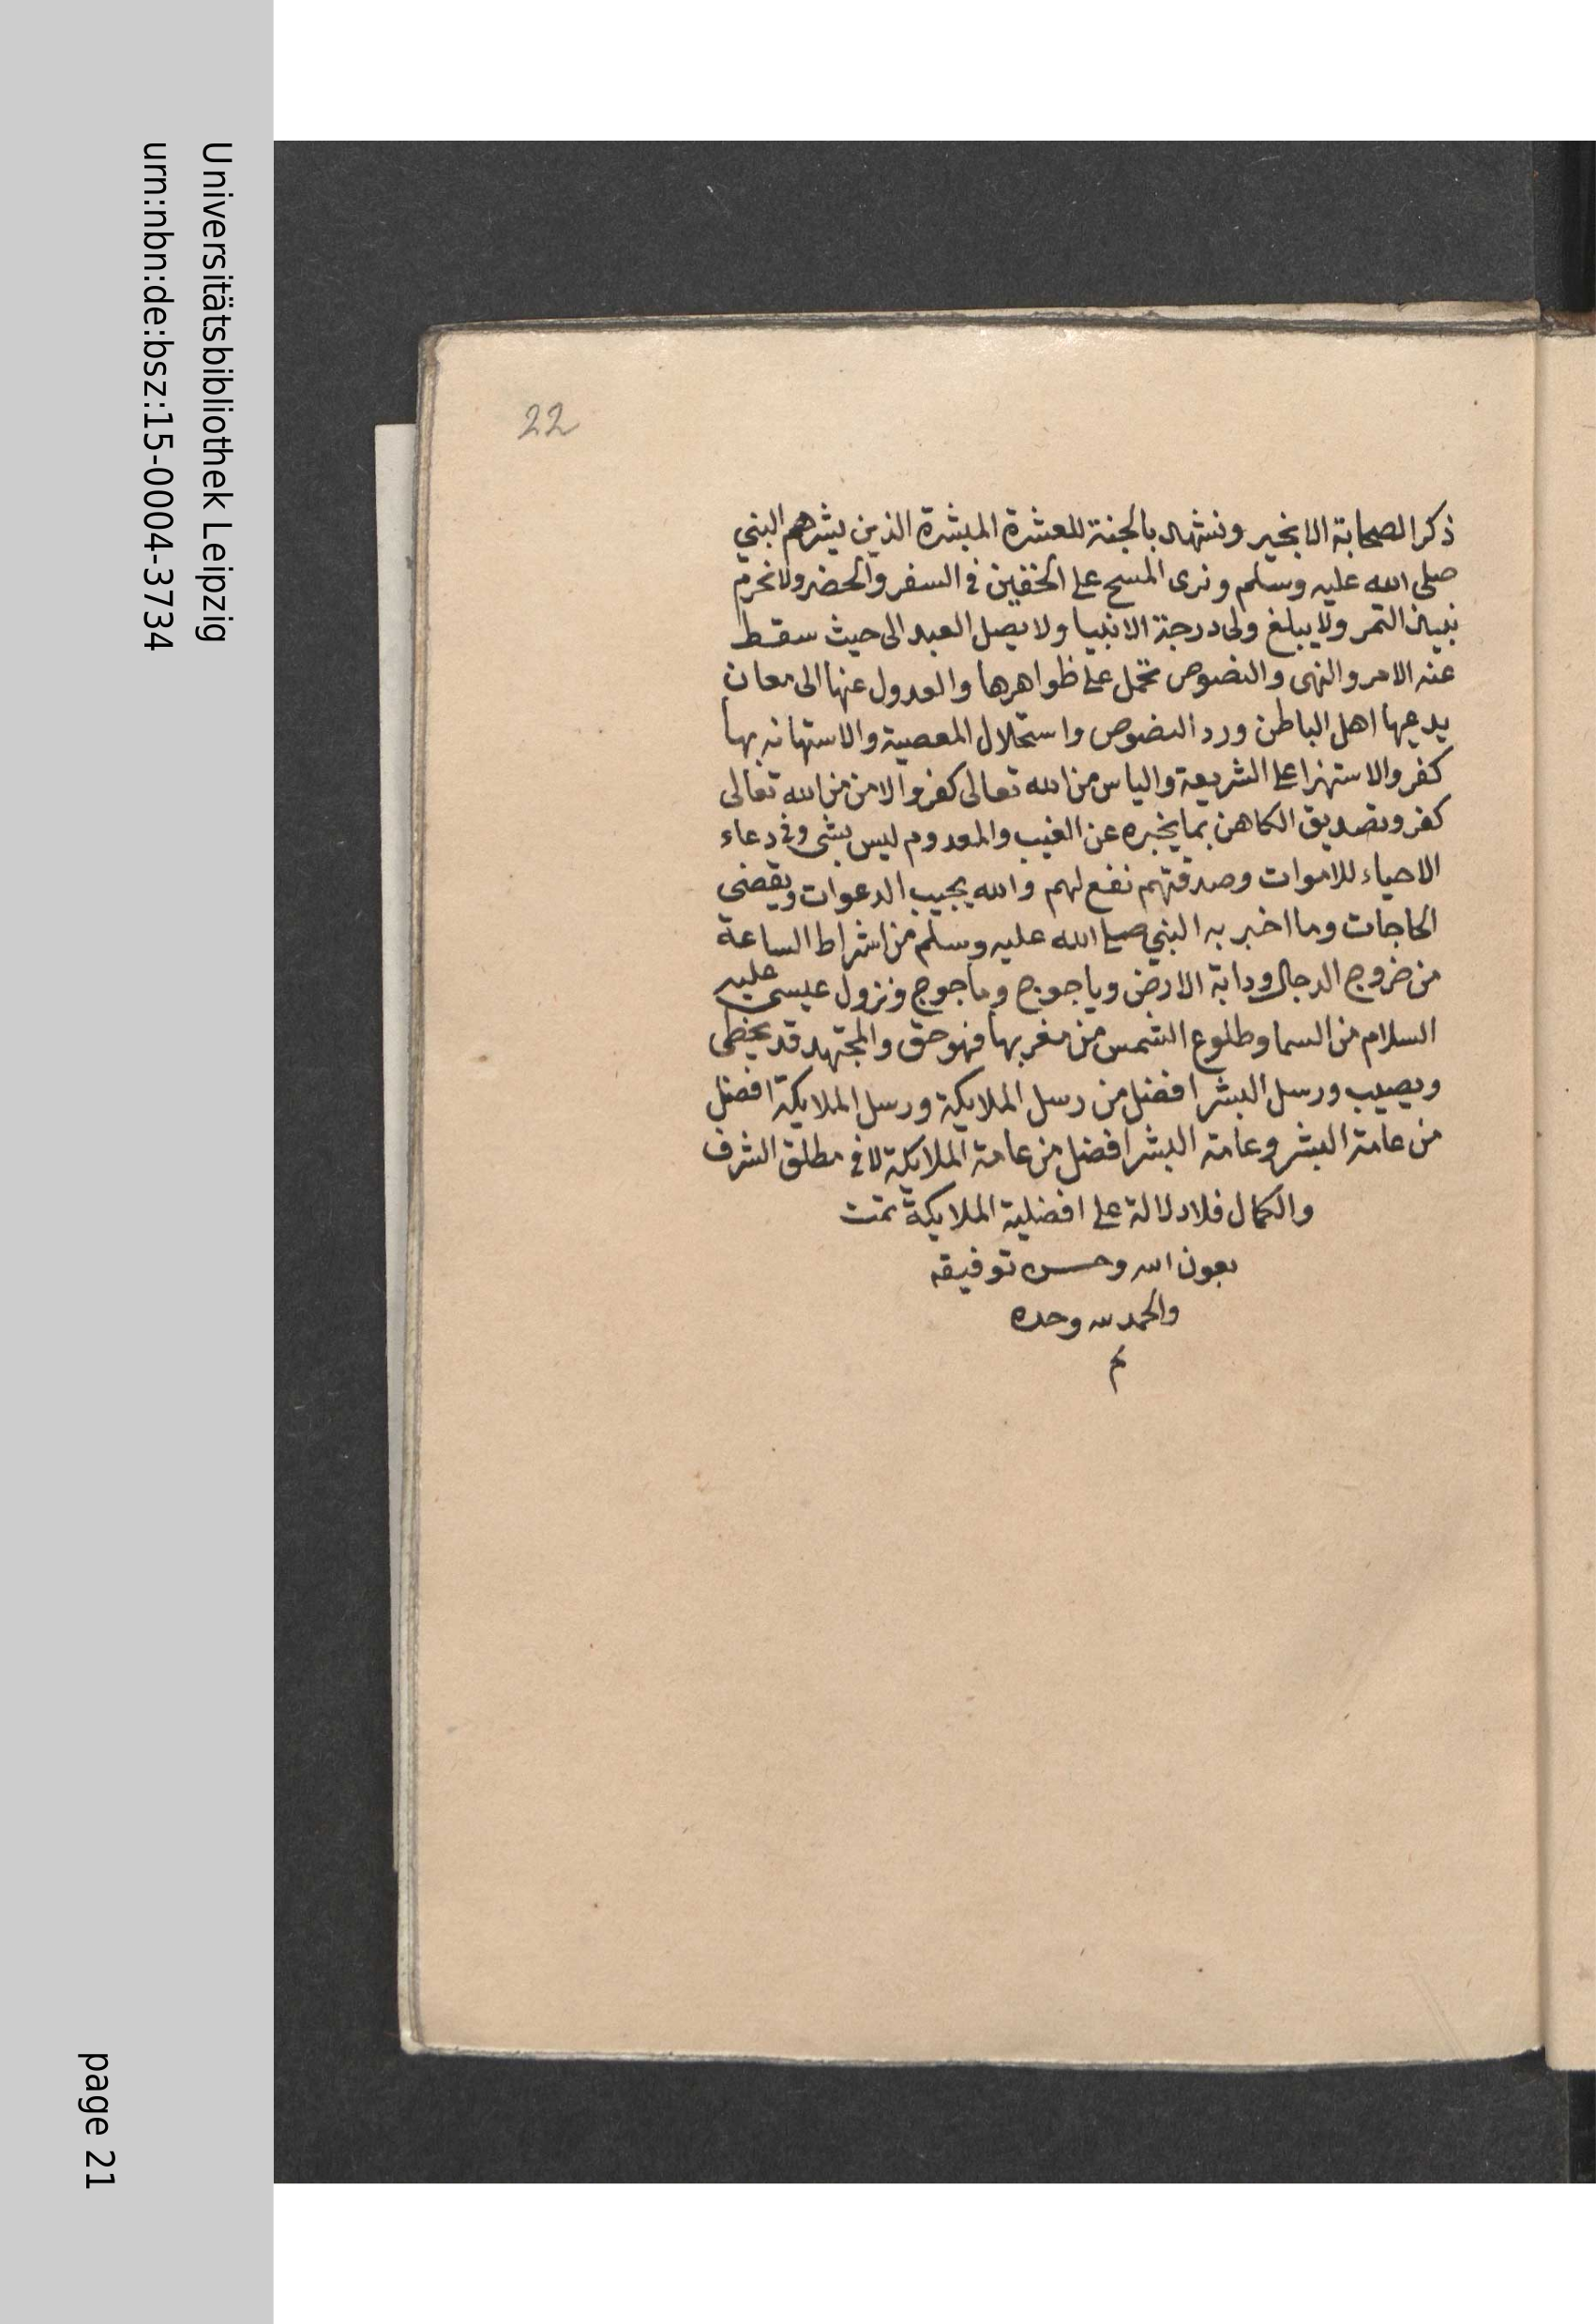 Universitätsbibliothek Leipzig
urn:nbn:de:bsz:15-0004-3734
page 21
22
ذكر الصحابة الا بخير ونشهد بالجنة للعشرة المبشرة الذين بشرهم النبي
صلى الله عليه وسلم ونرى المسح على الخفين في السفر والحضر ولا نحرم
نبيذ التمر ولا يبلغ ولى درجة الانبيا ولا يصل العبد الى حيث سقط
عنه الامر والنهى والنصوص تحمل على ظواهرها والعدول عنها الى معان
يدعيها اهل الباطن ورد النصوص واستحلال المعصية والاستهانه بها
كفر والاستهزا على الشريعة والياس من الله تعالى كفر والامن من الله تعالى
كفر وتصديق الكاهن بما يخبره عن الغيب والمعدوم ليس بشى وفى دعاء
الاحياء للاموات وصدقتهم نفع لهم والله يجيب الدعوات ويقضى
الحاجات وما اخبر به النبي صلى الله عليه وسلم من اشراط الساعة
من خروج الدجال ودابة الارض وياجوج وماجوج ونزول عيسى عليه
السلام من السما وطلوع الشمس من مغربها فهو حق والمجتهد قد يخطى
ويصيب ورسل البشر افضل من رسل الملايكة ورسل الملايكة افضل
من عامة البشر وعامة البشر افضل من عامة الملايكة لا في مطلق الشرف
والكمال فلا دلالة على افضلية الملايكة تمت
بعون الله وحسن توفيقه
والحمد لله وحده
م